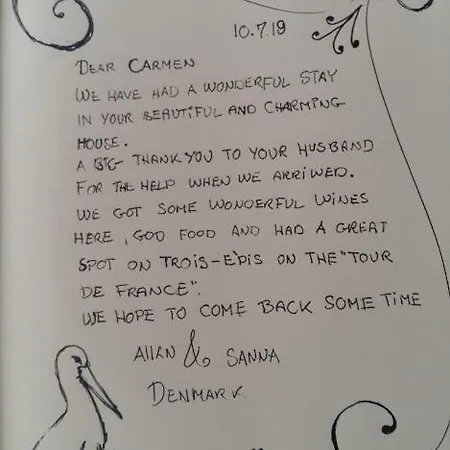 10.7.19
DEAR CARMEN
WE HAVE HAD A WONDERFUL STAY
IN YOUR BEAUTIFUL AND CHARMING
HOUSE.
A BIG THANK YOU TO YOUR HUSBAND
FOR THE HELP WHEN WE ARRIWED.
WE GOT SOME WONDERFUL WINES
HERE, GOD FOOD AND HAD A GREAT
SPOT ON TROIS-E'PIS ON THE "TOUR
DE FRANCE".
WE HOPE TO COME BACK SOME TIME
Allan & SANNA
DENMARK